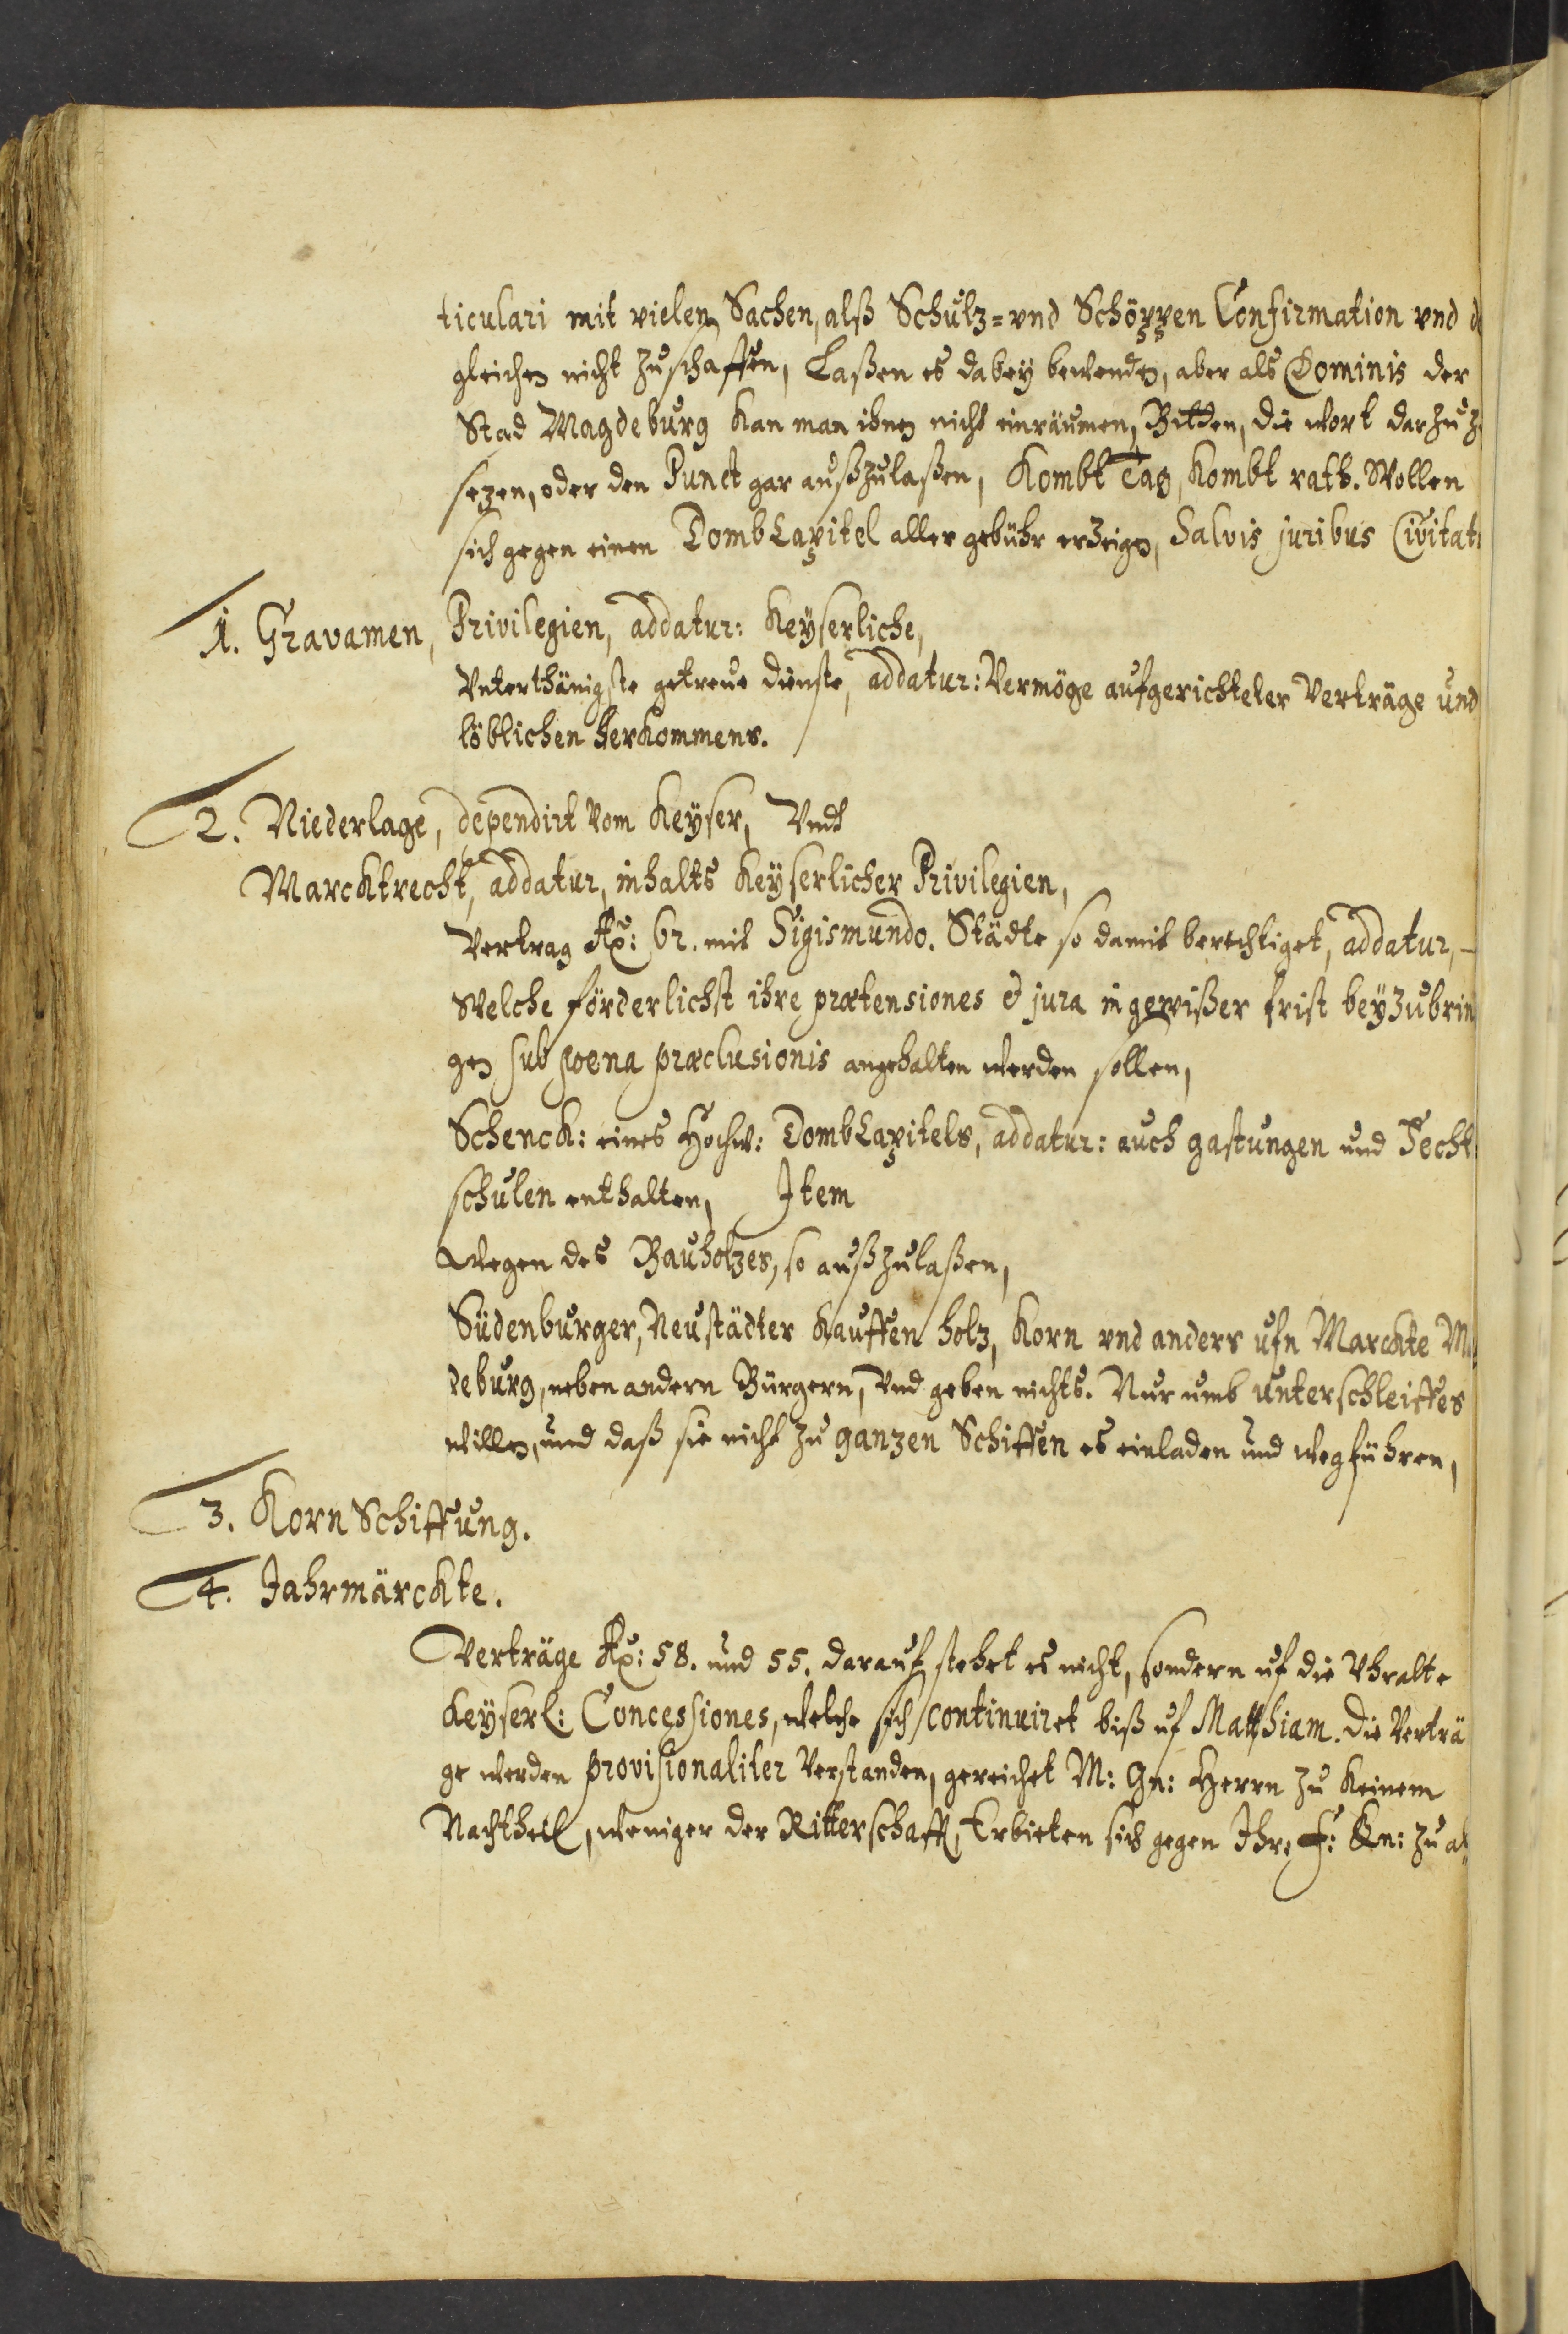 ticulari mit vielen Sachen, alß Schultz= vnd Schöppen Confirmation vnd d
gleichen nicht zuschaffen, Laßen es dabey bewenden, aber als Dominis der
Stad Magdeburg kan man ihnen nicht einräumen, Bitten, die wort darzu z
sezen, oder den Punct gar außzulaßen, Kombt Tag, kombt rath. Wollen
sich gegen einen DombCapitel aller gebühr erzeigen, Salvis juribus Civitat
1. Gravamen, Privilegien, addatur: Keyserliche,
Vnterthänigste getreue dienste, addatur: Vermöge aufgerichteter Verträge und
löblichen herkommens.
2. Niederlage, dependirt vom Keyser, Vndt
Marcktrecht, addatur, inhalts Keyserlicher Privilegien,
Vertrag Ao: 62. mit Sigismundo. Städte so damit berechtiget, addatur, -
Welche förderlichst ihre prætensiones et jura in gewißer frist beyzubrin
gen sub poena præclusionis angehalten werden sollen,
Schenck: eines Hochw: DombCapitels, addatur: auch gastungen und Fecht
schulen enthalten, Item
Wegen des Bauholzes, so außzulaßen,
Südenburger, Neustädter kauffen holz, Korn vnd anders ufn Marckte M
deburg, neben andern Bürgern, Vnd geben nichts. Nur umb unterschleiffes
willen, und daß sie nicht zu ganzen Schiffen es einladen und wegführen,
3. Korn Schiffung.
4. Jahrmärckte.
Verträge Ao: 58. und 55. darauf stehet es nicht, sondern uf die Vhralte
Keyserl: Concessiones, welche sich continuiret biß uf Matthiam. Die Verträ
ge werden provisionaliter Verstanden, gereichet M: Gn: Herrn zu keinem
Nachtheil, weniger der Ritterschafft, Erbieten sich gegen Ihre F: Gn: zu al